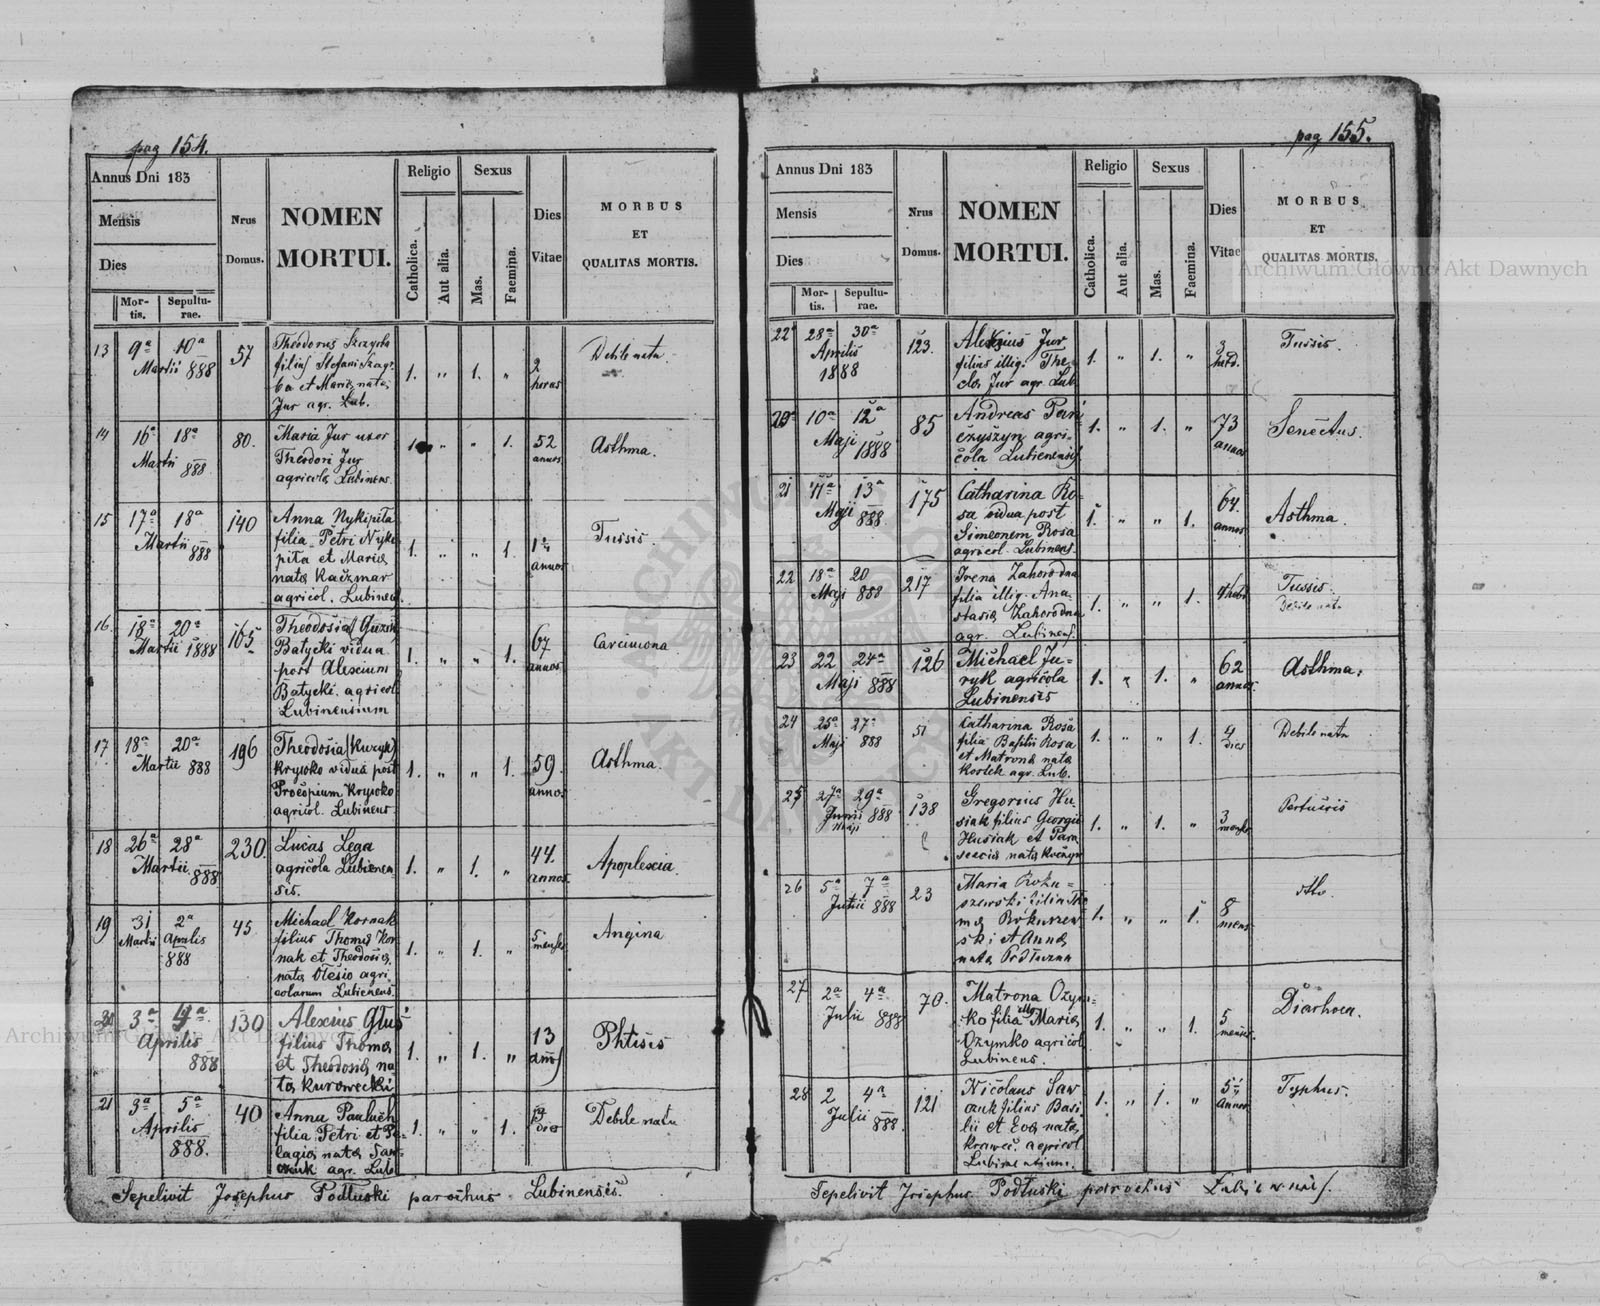 pag 154.
Annus Dni 183
Mensis
Dies
Mortis.
Sepulturae.
Nrus
Domus.
NOMEN
MORTUI.
Religio
Catholica.
Aut alia.
Sexus
Mas.
Faemina.
Dies
Vitae
MORBUS
ET
QUALITAS MORTIS.
13 9a 10a 57 Theodorus
Martii 888 filius Stefani
et Maria nata
Jur agr. Lub.
1. " 1. " 2
horas
Debile natu
14 16a 18a 80. Maria Jur uxor
Martii 888 Theodori Jur
agricola Lubinens
1 " " 1. 52
annos
Asthma.
15 17a 18a 140 Anna Nykipita
Martii 888 filia Petri Nyki
pita et Maria
nata Kaczmar
agricol. Lubinens
1. " " 1.
annos
Tussis.
16 18a 20a 165 Theodosia
Martii 1888 Batycki vidua
post Alexium
Batycki agricol
Lubinensium
1. " " 1. 67
annos
Carcinoma
17 18a 20a 196 Theodosia (Kuzyk)
Martii 888 Krysko vidua post
Procopium Krysko
agricol. Lubinens
1. " " 1. 59.
annos
Asthma.
18 26a 28a 230. Lucas Lega
Martii 888 agricola Lubienen
sis.
1. " 1. " 44.
annos
Apoplexia.
19 31 2a 45 Michael Kornak
Martii Aprilis filius Thoma Kor
888 nak et Theodosia
nata Olesio agri
colarum Lubienens
1. " 1. " 5
menses
Angina
20 3a 4a 130 Alexius Glus
Aprilis filius Thoma
888 et Theodosia na
ta Kurowecki
1. " 1. " 13
ann
Phtisis
21 3a 5a 40 Anna Pauluch
Aprilis filia Petri et Pe-
888. lagia nata
agr. Lub
1. " " 1.
dies
Debile natu
Sepelivit Josephus Podłuski parochus Lubinensis.
pag 155.
Annus Dni 183
Mensis
Dies
Mortis.
Sepulturae.
Nrus
Domus.
NOMEN
MORTUI.
Religio
Catholica.
Aut alia.
Sexus
Mas.
Faemina.
Dies
Vitae
MORBUS
ET
QUALITAS MORTIS.
22 28a 30a 123. Alexius Jur
Aprilis filius illig. The
1888 cla Jur agr Lub
1. " 1. " 3
Tussis.
10a 12a 85 Andreas
Maji 1888 agri-
cola Lubienensis
1. " 1. " 73
annos
Senectus.
21 11a 13a 175 Catharina Ro-
Maji 888 sa vidua post
Simeonem Rosa
agricol. Lubinens
1. " " 1. 64
annos
Asthma.
22 18a 20 217 Irena Zahorodna
Maji 888 filia illig. Ana
stasia Zahorodna
agr. Lubinens.
1. " " 1. 4
Tussis.
Debile natu
23 22 24a 126 Michael Ju-
Maji 888 ryk agricola
Lubinensis
1. " 1. " 62
annos.
Asthma.
24 25a 27a 51 Catharina Rosa
Maji 888 filia Basilii Rosa
et Matrona nata
Kostek agr. Lub.
1. " " 1. 4
dies
Debile natu
25 27a 29a 138 Gregorius Hu-
Junii 888 siak filius Georgii
Maji Husiak et Para
scevia nata
1. " 1. " 3
menses
Pertussis
26 5a 7a 23 Maria
Junii 888 filia Tho
ma
ski et Anna
nata
1. " " 1. 8
mens
27 2a 4a 70. Matrona Ozym-
Julii 888 ko filia illig Maria
Ozymko agricol
Lubinens.
1. " " 1. 5
menses
Diarhoea.
28 2 4a 121 Nicolaus Saw
Julii 888. czuk filius Basi
lii et Eva nata
Krawec agricol
Lubinensium.
1. " 1. " 5
Annos
Typhus.
Sepelivit Josephus Podłuski parochus
Archiwum Główne Akt Dawnych
Archiwum Główne Akt Dawnych